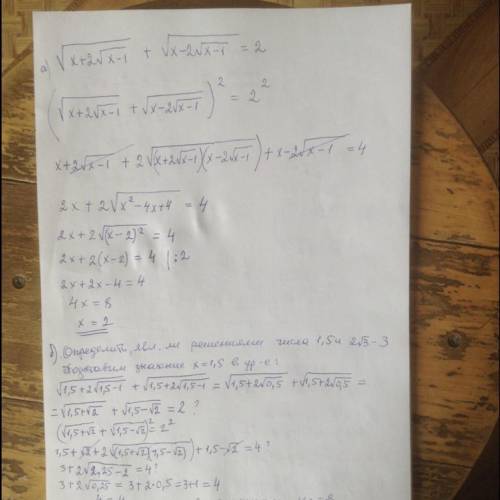 а) √(x+2√(x-1)) + √(x-2√(x-1)) = 2
(√(x+2√(x-1)) + √(x-2√(x-1)))² = 2²
x+2√(x-1) + 2√((x+2√(x-1))(x-2√(x-1))) + x-2√(x-1) = 4
2x + 2√(x²-4x+4) = 4
2x + 2√((x-2)²) = 4
2x + 2(x-2) = 4 |:2
2x + 2x - 4 = 4
4x = 8
x = 2
б) Определить, явл. ли решениями числа 1,5 и 2√3-3
Подставим значение x=1,5 в ур-е:
√(1,5+2√(1,5-1)) + √(1,5+2√(1,5-1)) = √(1,5+2√0,5) + √(1,5+2√0,5) =
= √(1,5+√2) + √(1,5-√2) = 2 ?
(√(1,5+√2) + √(1,5-√2))² = 2²
1,5+√2 + 2√((1,5+√2)(1,5-√2)) + 1,5-√2 = 4 ?
3+2√(2,25-2) = 4 ?
3+2√0,25 = 3+2·0,5 = 3+1 = 4